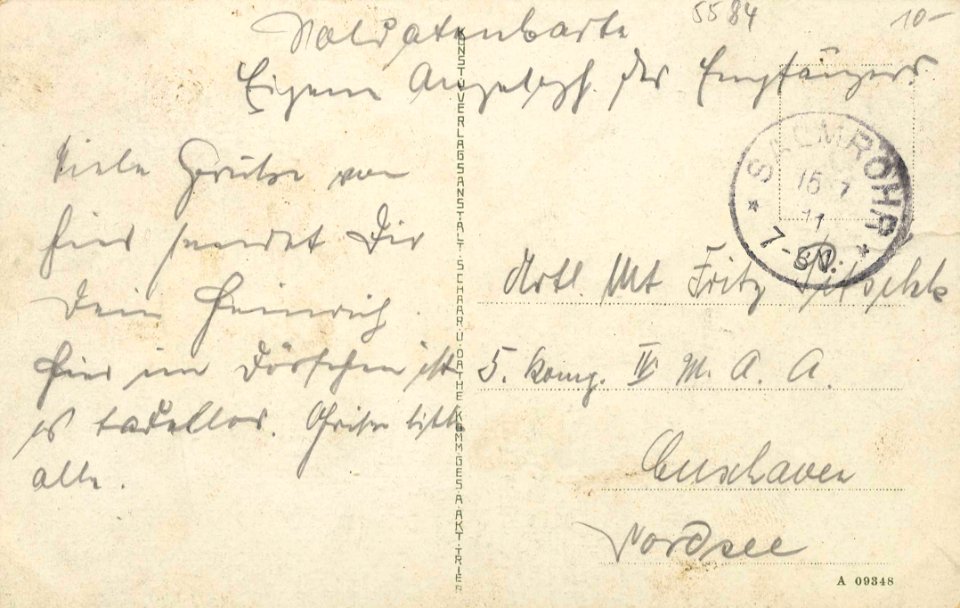 5584
10-
Soldatenkarte
Eigene Angelegh. des Empfängers
SALMROHR
15 7
11
7-8N.
Viele Grüße von
hier sendet Dir
Dein Heinrich.
Hier im Dörfchen ist
es tadellos. Grüße bitte
alle.
KUNSTVERLAGSANSTALT SCHAAR U. DATHE KOMM. GES. A. AKT. TRIER
Artl. Mt Fritz
5. Komp. IV M. A. A.
Cuxhaven
Nordsee
A 09348